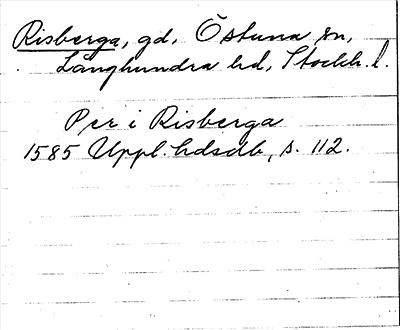 Risberga, gd, Östuna sn,
Långhundra hd, Stockh. l.
Per i Risberga
1585 Uppl. hdsdb, s. 112.